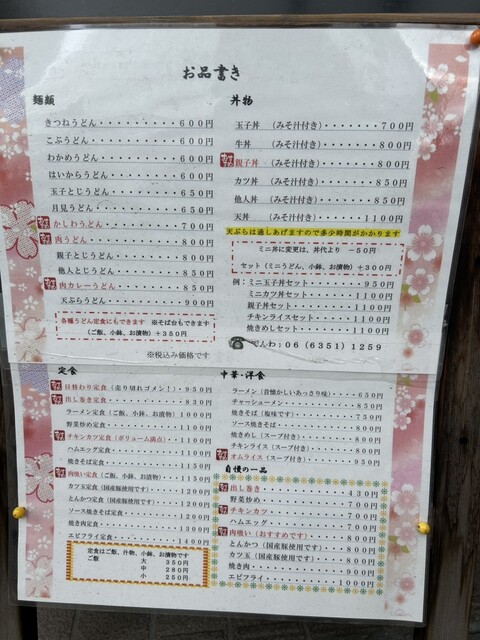 お品書き
麺類
きつねうどん・・・・・・・600円
こぶうどん・・・・・・・・600円
わかめうどん・・・・・・・600円
はいからうどん・・・・・・600円
玉子とじうどん・・・・・・650円
月見うどん・・・・・・・・650円
かしわうどん・・・・・・・700円
肉うどん・・・・・・・・・800円
親子とじうどん・・・・・・850円
他人とじうどん・・・・・・850円
肉カレーうどん・・・・・・850円
天ぷらうどん・・・・・・・900円
各種うどん定食にもできます ※そば台もできます
(ご飯、小鉢、お漬物)+350円
※税込み価格です
丼物
玉子丼 (みそ汁付き)・・・・・・・700円
牛丼 (みそ汁付き)・・・・・・・800円
親子丼 (みそ汁付き)・・・・・・・800円
カツ丼 (みそ汁付き)・・・・・・・850円
他人丼 (みそ汁付き)・・・・・・・850円
天丼 (みそ汁付き)・・・・・・・1100円
天ぷらは通しあげますので多少時間がかかります
ミニ丼に変更は、丼代より -50円
セット(ミニうどん、小鉢、お漬物)+300円
例:ミニ玉子丼セット・・・・・・・950円
ミニカツ丼セット・・・・・・・1100円
親子丼セット・・・・・・・1100円
チキンライスセット・・・・・・1100円
焼きめしセット・・・・・・・1100円
☎でんわ:06(6351)1259
定食
日替わり定食(売り切れゴメン!)・950円
出し巻き定食・・・・・・・・830円
ラーメン定食(ご飯、小鉢、お漬物)1000円
野菜炒め定食・・・・・・・1100円
チキンカツ定食(ボリューム満点)・・1100円
ハムエッグ定食・・・・・・1100円
焼きそば定食・・・・・・・1150円
肉吸い定食(ご飯、小鉢、お漬物)・・1150円
カツ玉定食(国産豚使用です)・・・1200円
とんかつ定食(国産豚使用です)・・1200円
ソース焼きそば定食・・・・・1200円
焼き肉定食・・・・・・・・1300円
エビフライ定食・・・・・・・1400円
定食はご飯、汁物、小鉢、お漬物です
ご飯 大 350円
中 280円
小 250円
中華・洋食
ラーメン(昔懐かしいあっさり味)・・・・650円
チャーシューメン・・・・・・・850円
焼きそば(塩味です)・・・・・・750円
ソース焼きそば・・・・・・・800円
焼きめし(スープ付き)・・・・・・800円
チキンライス(スープ付き)・・・・800円
オムライス(スープ付き)・・・・・950円
自慢の一品
出し巻き・・・・・・・・430円
野菜炒め・・・・・・・・700円
チキンカツ・・・・・・・700円
ハムエッグ・・・・・・・700円
肉吸い(おすすめです)・・・・・800円
とんかつ(国産豚使用です)・・・・800円
カツ玉(国産豚使用です)・・・・800円
焼き肉・・・・・・・・・900円
エビフライ・・・・・・・1000円